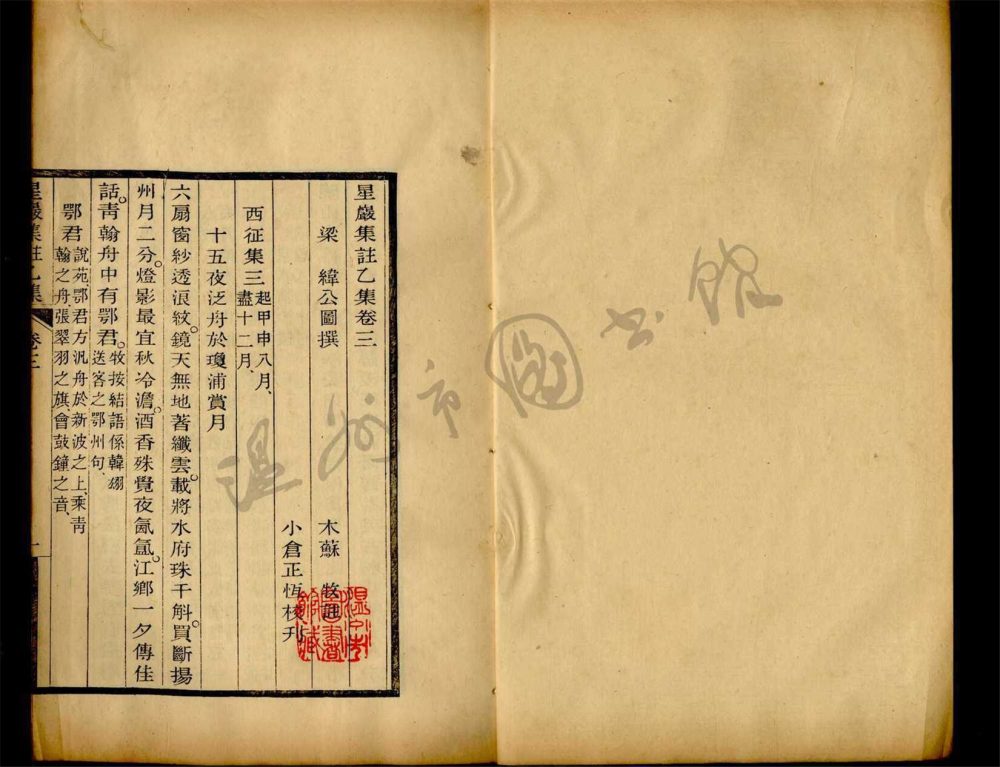 星巖集註乙集卷三
梁 緯公圖撰
木蘇 牧註
小倉正恆校刋
西征集三 起甲申八月、
盡十二月、
十五夜泛舟於瓊浦賞月
六扇窗紗透浪紋。鏡天無地著纖雲。載將水府珠千斛。買斷揚
州月二分。燈影最宜秋冷澹。酒香殊覺夜氤氳。江鄉一夕傳佳
話。靑翰舟中有鄂君。牧按結語係韓翃
送客之鄂州句、
鄂君 說苑、鄂君方汎舟於新波之上、乘靑
翰之舟、張翠羽之旗、會鼓鐘之音、
星巖集註乙集 卷三 一
溫州市圖書館藏
溫州市圖書館